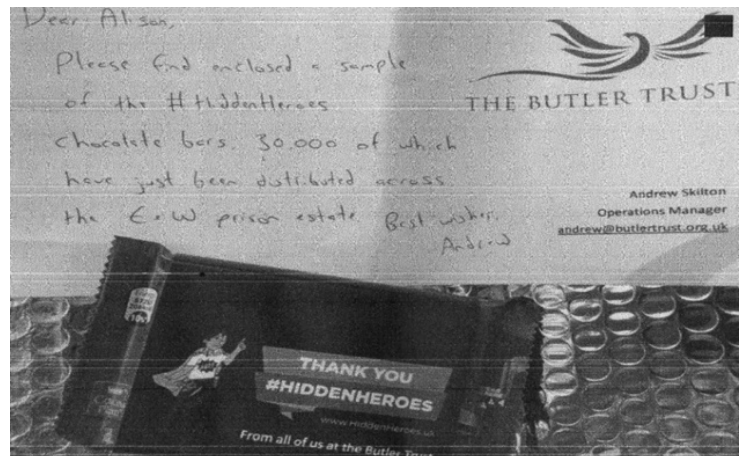 Dear Alison,
Please find enclosed a sample
of the #HiddenHeroes
chocolate bars. 30,000 of which
have just been distributed across
the E&W prison estate. Best wishes,
Andrew
THE BUTLER TRUST
Andrew Skilton
Operations Manager
andrew@butlertrust.org.uk
THANK YOU
#HIDDENHEROES
www.HiddenHeroes.uk
From all of us at the Butler Trust